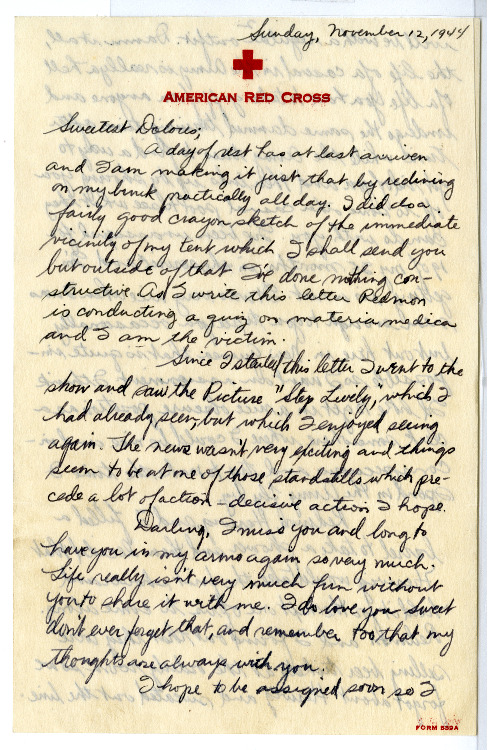 Sunday, November 12, 1944
AMERICAN RED CROSS
Sweetest Dolores;
A day of rest has at last arriven
and I am making it just that by reclining
on my bunk practically all day. I did do a
fairly good crayon sketch of the immediate
vicinity of my tent which I shall send you
but outside of that I've done nothing con-
structive. As I write this letter Redmon
is conducting a quiz on materia medica
and I am the victim.
Since I started this letter I went to the
show and saw the Picture "Step Lively," which I
had already seen, but which I enjoyed seeing
again. The news wasn't very exciting and things
seem to be at one of those standstills which pre-
cede a lot of action - decisive action I hope.
Darling, I miss you and long to
have you in my arms again so very much.
Life really isn't very much fun without
you to share it with me. I do love you sweet
don't ever forget that, and remember too that my
thoughts are always with you.
I hope to be assigned soon so I
FORM 539A